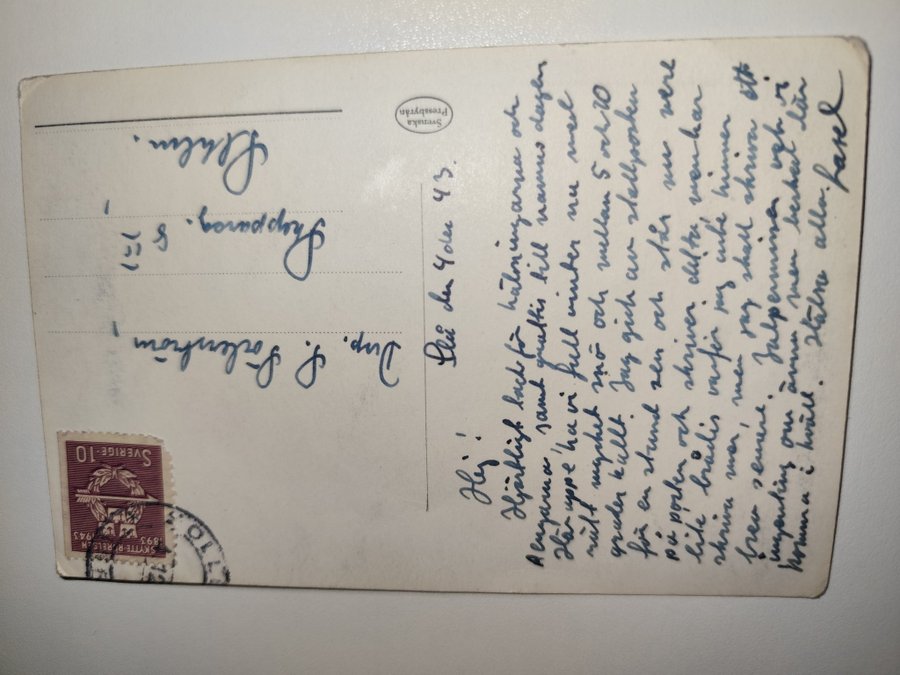 den 4 dec 43.
Hej!
Hjärtligt tack för hälsningarna och
pengarna samt grattis till namnsdagen
Här uppe ha vi full vinter nu med
rätt mycket snö och mellan 5 och 10
grader kallt. Jag gick av stallposten
för en stund sen och står nu nere
på posten och skriver detta, men har
lite bråttis varför jag inte hinner
skriva mer, men jag skall skriva ett
brev senare. Julpermission veta vi
ingenting om ännu men besked lär
komma i kväll. Hälsa alla.
Svenska
Pressbyrån
SVERIGE·10
SKYTTE-RÖRELSEN
1893 1943
Disp. S. Söderström
Skepparg. 5
Sthlm.